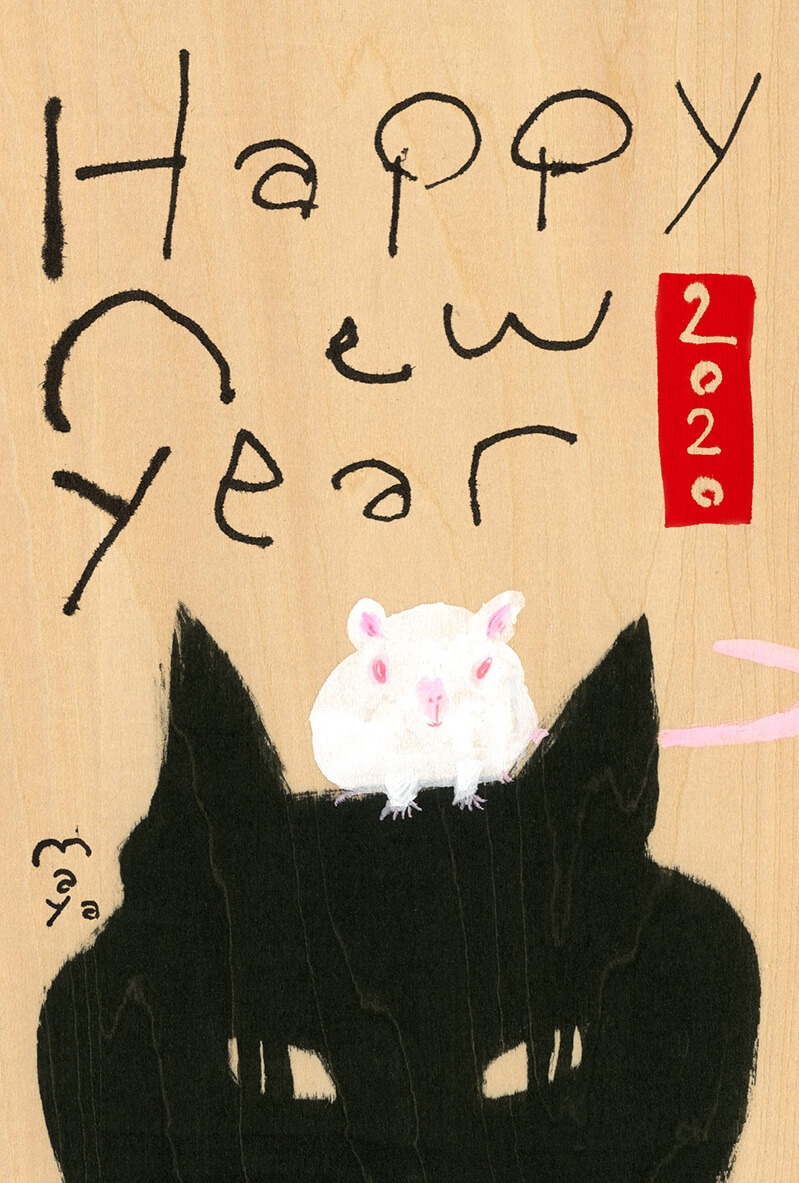 Happy
new
year
2020
maya